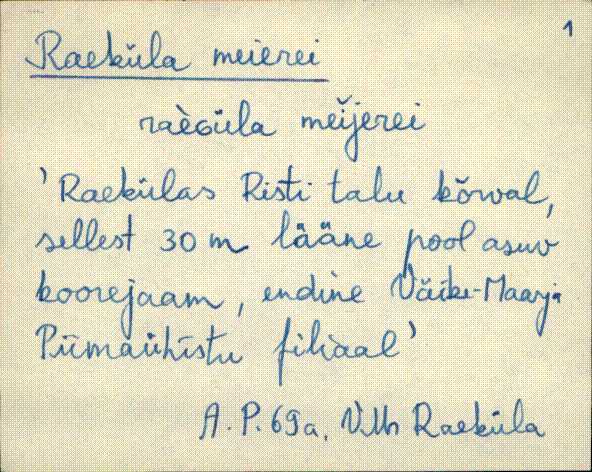 1
Raeküla meierei
raèGüla meĭjerei
'Raekülas Risti talu kõrval,
sellest 30 m lääne pool asuv
koorejaam, endine Väike-Maarja
Piimaühistu filiaal'
A. P. 69a, VMr Raeküla